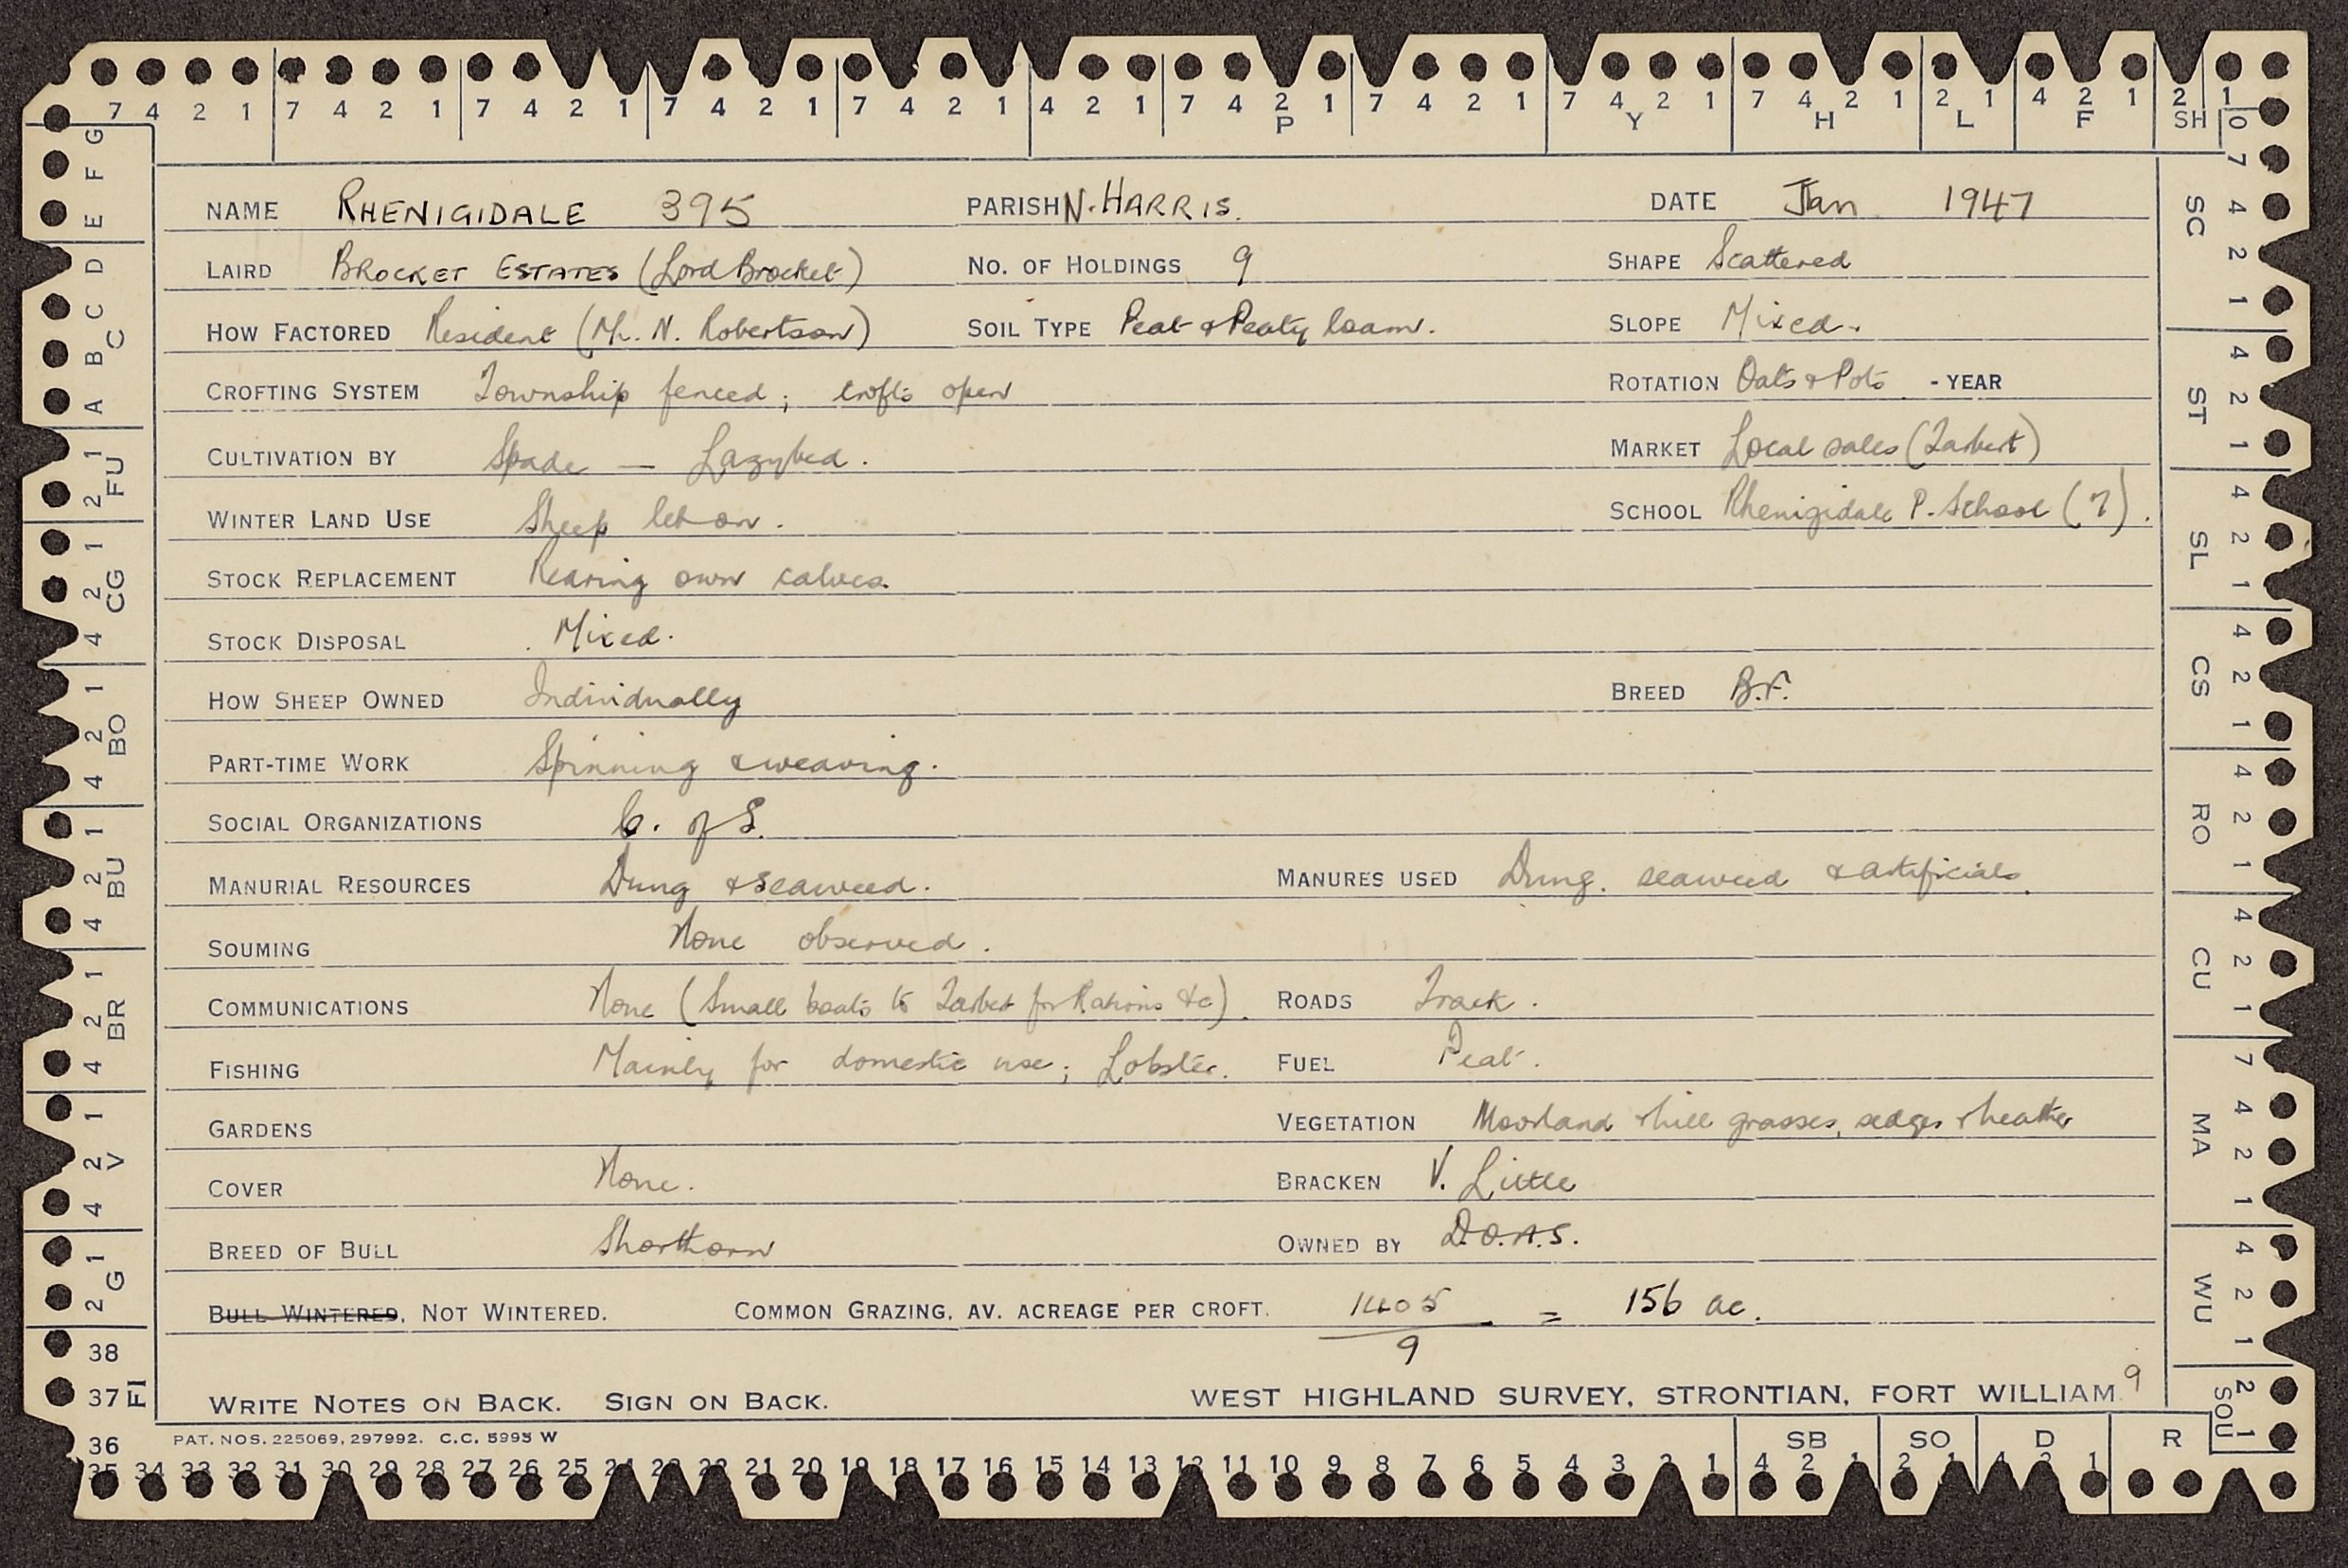 7 4 2 1 7 4 2 1 7 4 2 1 7 4 2 1 7 4 2 1 4 2 1 7 4 2 1 7 4 2 1 7 4 2 1 7 4 2 1 2 1 4 2 1 2 1
P Y H L F SH
NAME RHENIGIDALE 395 PARISH N. HARRIS. DATE Jan 1947
LAIRD BROCKET ESTATES (Lord Brocket) NO. OF HOLDINGS 9 SHAPE Scattered
HOW FACTORED Resident (Mr. N. Robertson) SOIL TYPE Peat & Peaty loam. SLOPE Mixed.
CROFTING SYSTEM Township fenced; crofts open ROTATION Oats & Pots -YEAR
CULTIVATION BY Spade — Lazybed. MARKET Local sales (Tarbert)
WINTER LAND USE Sheep let on. SCHOOL Rhenigidale P. School (7).
STOCK REPLACEMENT Rearing own calves.
STOCK DISPOSAL Mixed.
HOW SHEEP OWNED Individually BREED B.F.
PART-TIME WORK Spinning & weaving.
SOCIAL ORGANIZATIONS C. of S.
MANURIAL RESOURCES Dung & seaweed. MANURES USED Dung. seaweed & artificials.
SOUMING None observed.
COMMUNICATIONS None (Small boats to Tarbert for Rations &c). ROADS Track.
FISHING Mainly for domestic use; Lobster. FUEL Peat.
GARDENS VEGETATION Moorland & hill grasses, sedges & heather
COVER None. BRACKEN V. Little
BREED OF BULL Shorthorn OWNED BY D.O.A.S.
BULL WINTERED, NOT WINTERED. COMMON GRAZING, AV. ACREAGE PER CROFT. 1405 = 156 ac.
9
9
WRITE NOTES ON BACK. SIGN ON BACK. WEST HIGHLAND SURVEY, STRONTIAN, FORT WILLIAM.
PAT. NOS. 225069, 297992. C.C. 5995 W
SB SO D R
35 34 33 32 31 30 29 28 27 26 25 24 23 22 21 20 19 18 17 16 15 14 13 12 11 10 9 8 7 6 5 4 3 2 1 4 2 1 2 1 4 2 1
G F E D C B A
C
1 2 FU
1 2 4 CG
1 2 4 BO
1 2 4 BU
1 2 4 BR
1 2 4 V
1 2 G
38
37 FI
36
0 7 4 2 1 SC
4 2 1 ST
4 2 1 SL
4 2 1 CS
4 2 1 RO
4 2 1 CU
7 4 2 1 MA
4 2 1 WU
2 1 SOU